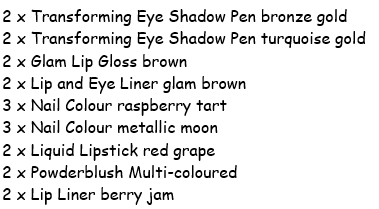 2 x Transforming Eye Shadow Pen bronze gold
2 x Transforming Eye Shadow Pen turquoise gold
2 x Glam Lip Gloss brown
2 x Lip and Eye Liner glam brown
3 x Nail Colour raspberry tart
3 x Nail Colour metallic moon
2 x Liquid Lipstick red grape
2 x Powderblush Multi-coloured
2 x Lip Liner berry jam